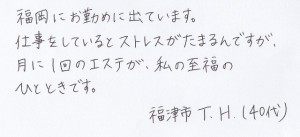 福岡にお勤めに出ています。
仕事をしているとストレスがたまるんですが、
月に1回のエステが、私の至福の
ひとときです。
福津市 T.H.(40代)